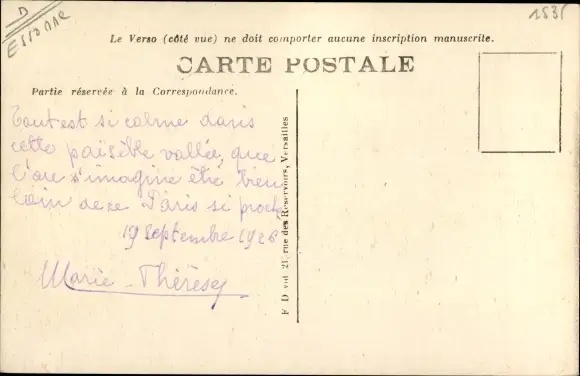 D
ESSONNE
1535
Le Verso (côté vue) ne doit comporter aucune inscription manuscrite.
CARTE POSTALE
Partie réservée à la Correspondance.
Tout est si calme dans
cette paisible vallée, que
l'on s'imagine être bien
loin de ce Paris si proche
19 septembre 1926
Marie-Thérèse
F D vol 21, rue des Réservoirs, Versailles